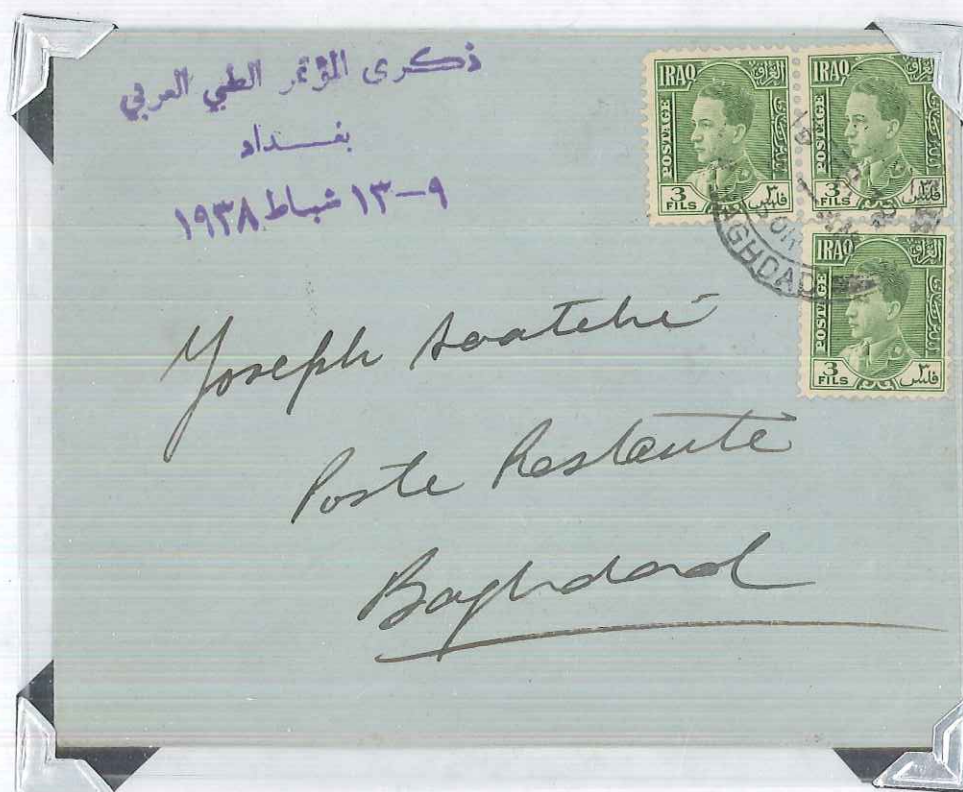 ذكرى المؤتمر الطبي العربي
بغداد
٩-١٣ شباط ١٩٣٨
IRAQ العراق
POSTAGE
3 FILS ٣ فلس
IRAQ العراق
POSTAGE
3 FILS ٣ فلس
BAGHDAD
IRAQ العراق
POSTAGE
3 FILS ٣ فلس
Joseph
Poste Restante
Baghdad